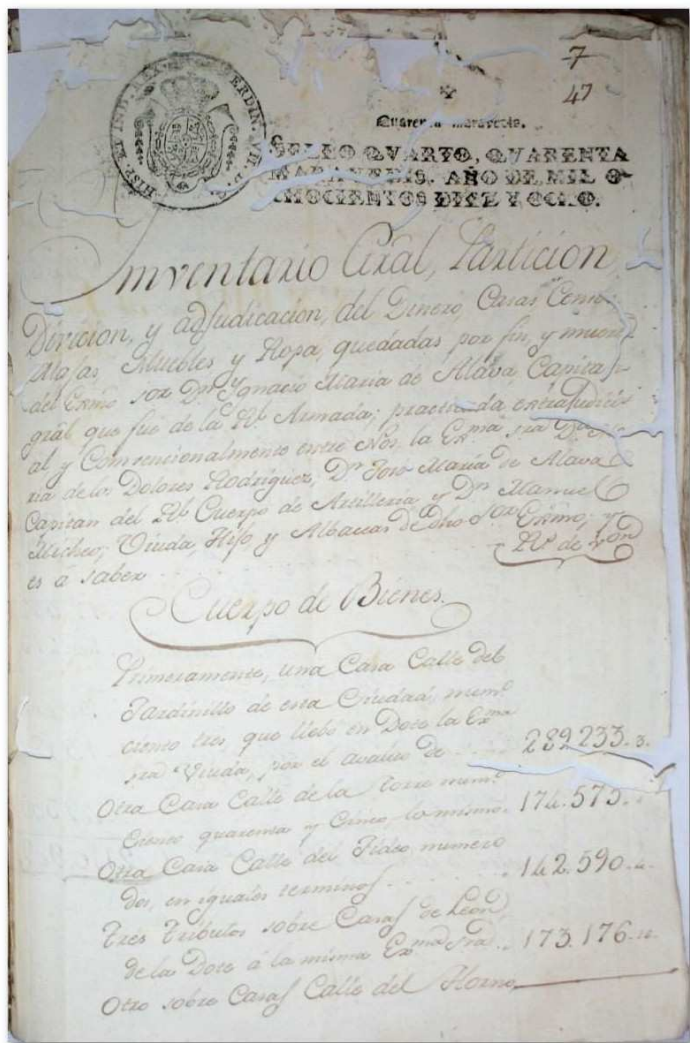 7
47
HISP. ET IND. REX FERDIN. VII. D. G.
Quarenta maravedis.
SELLO QVARTO, QVARENTA
MARAVEDIS, AÑO DE MIL O-
CHOCIENTOS DIEZ Y OCHO.
Inventario Gral, Particion,
Divicion, y adjudicacion, del Dinero, Casas
Alajas Muebles y Ropa, quedadas por fin, y muer
del Exmo sor Dn Ygnacio Maria de Alava, Capitan
gral que fue de la Rl Armada; practicada, extrajudici
al y Convencionalmente entre Nos, la Exma sra Da Ma
ria de los Dolores Rodriguez, Dn Jose Maria de Alava
Capitan del Rl Cuerpo de Artilleria y Dn Manuel
Micheo; Viuda, Hijo, y Albaceas de dho sor Exmo; y
es á saber
Rs de von
Cuerpo de Bienes.
Primeramente, una Casa Calle del
Jardinillo de esta Ciudad, numo
ciento tres, que llebó en Dote la Exma
sra Viuda, por el avaluo de 289233. 3.
Otra Casa Calle de la Torre numo
Ciento quarenta y Cinco, lo mismo. 174.575.
Otra Casa Calle del Fideo numero
dos, en iguales terminos 142.590.
Tres Tributos sobre Casas de Leon,
de la Dote á la misma Exma sra. 173.176.
Otro sobre Casas Calle del Horno